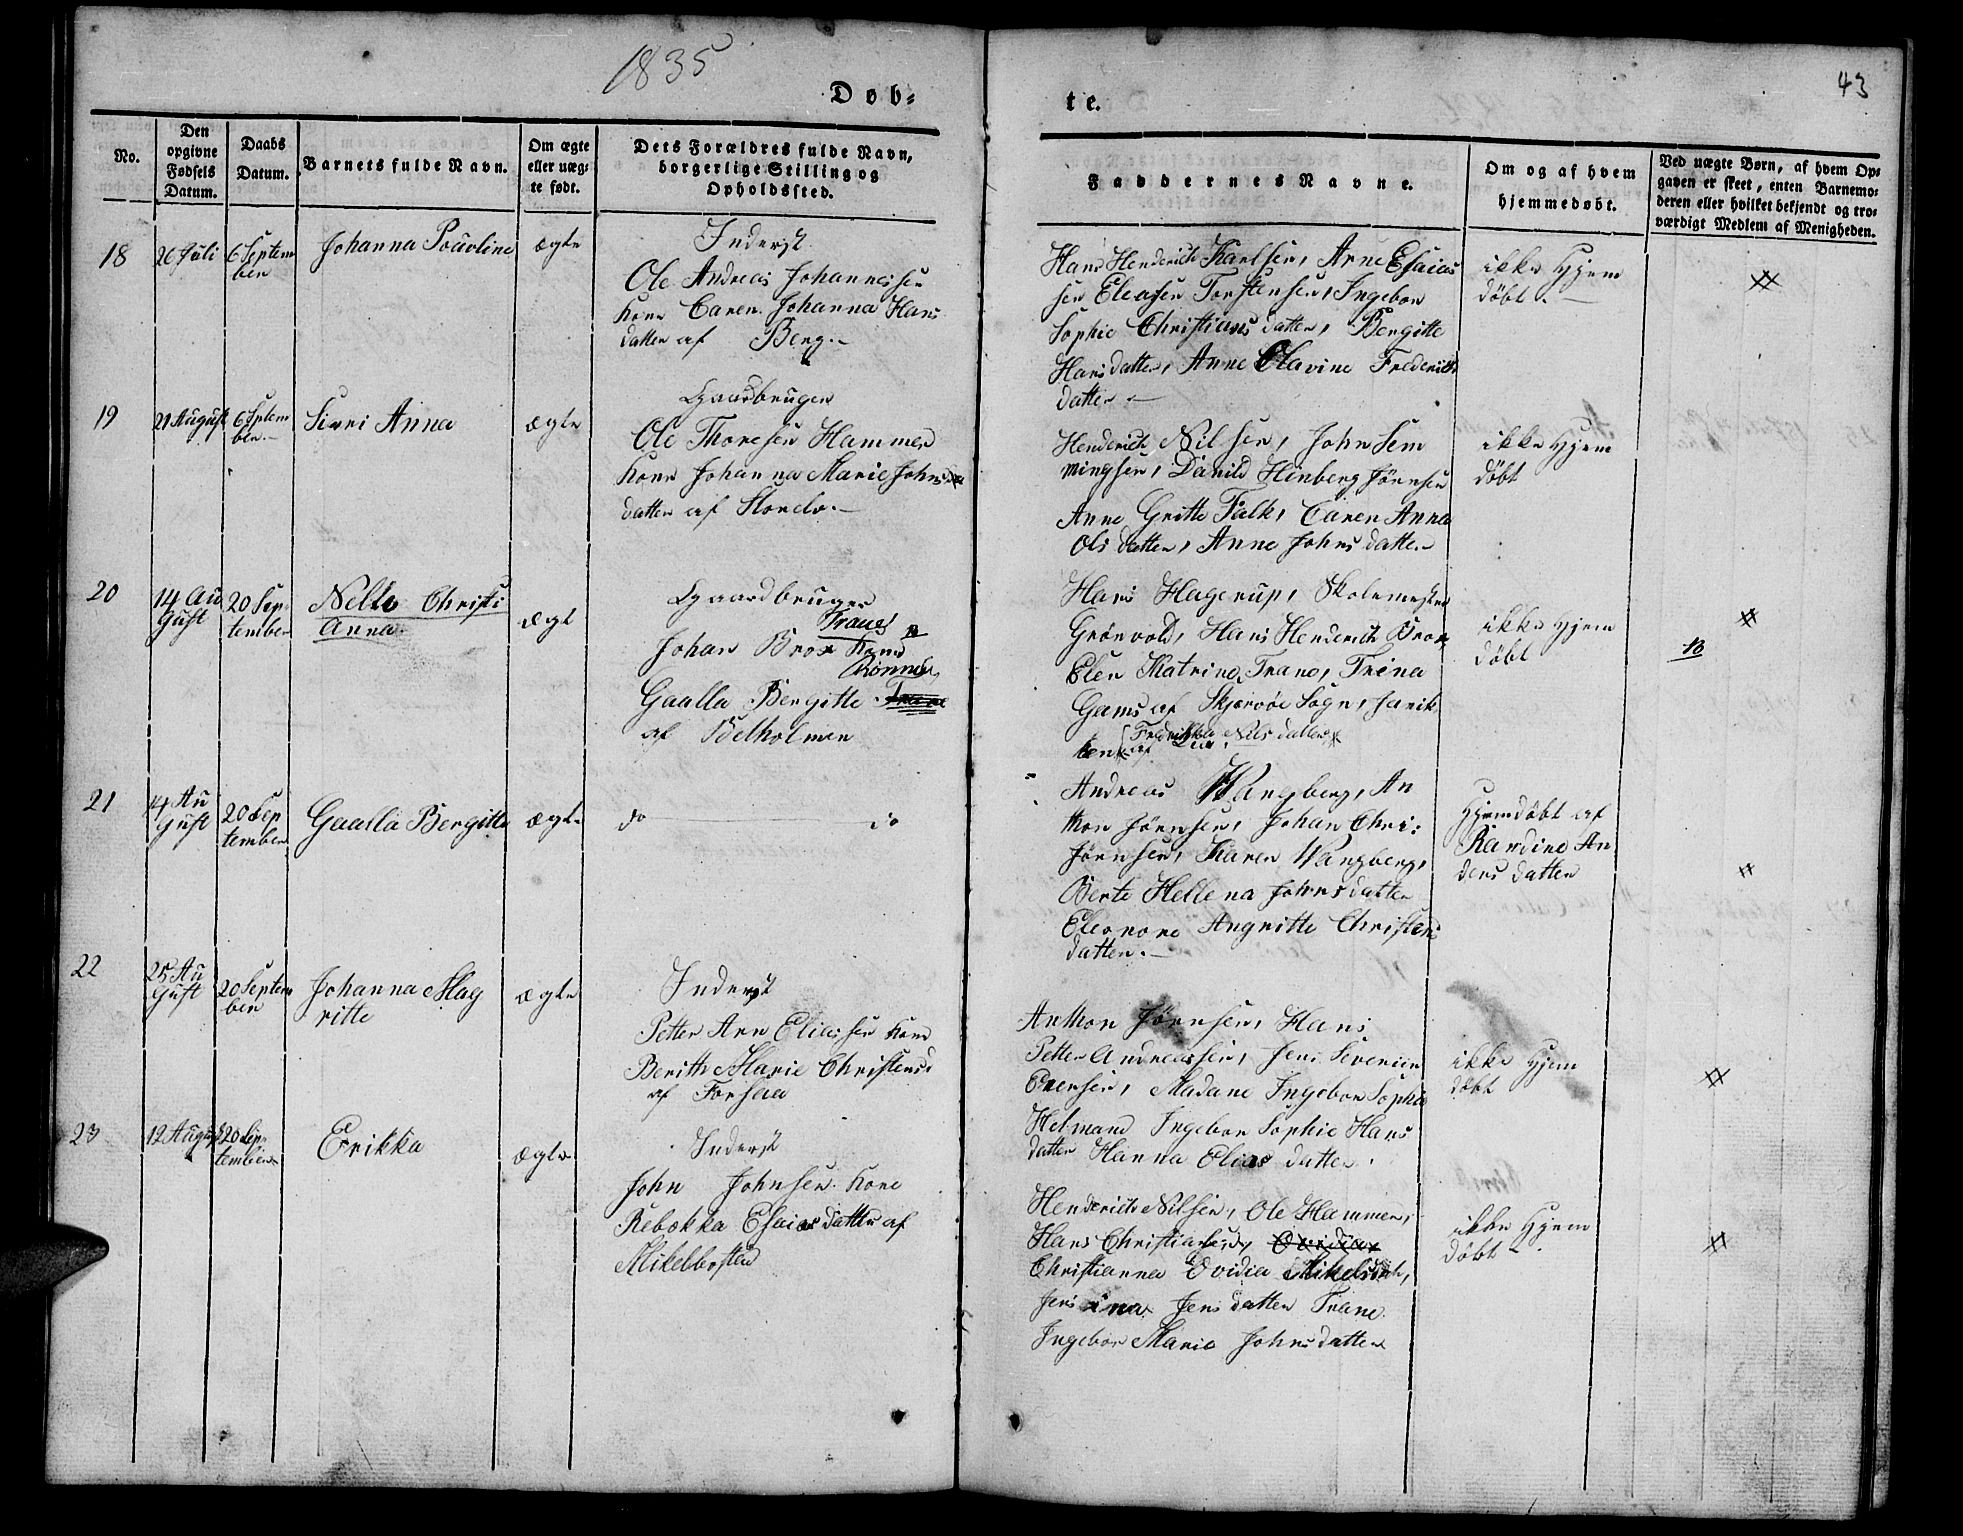 1835
43
Døb-
te.
No.
Den
opgivne
Fødsels
Datum.
Daabs
Datum.
Barnets fulde Navn.
Om ægte
eller uæg-
te født.
Dets Forældres fulde Navn,
borgerlige Stilling og
Opholdssted.
Faddernes Navne.
Om og af hvem
hjemmedøbt.
Ved uægte Børn, af hvem Op-
gaven er skeet, enten Barnemo-
deren eller hvilket bekjendt og tro-
værdigt Medlem af Menigheden.
18
26 Juli
6 Septem
ber
Johanna Pouvline
ægte
Inderst
Ole Andreas Johannessen
Kone Caren Johanna Hans
datter af Berg.-
Hans Henderich Karlsen, Arne Esaias
sen Eleasen Torstensen, Ingebor
Sophie Christians datter, Bergitte
Hansdatter, Anne Olavine Frederiks
datter -
ikke Hjem
døbt. -
19
21 August
6 Septem
ber.-
Sirri Anna
ægte
Gaardbruger
Ole Thoresen Hammer
Kone Johanna Marie Johns
datter af
Henderich Nilsen, John Sem
mingsen, Danild Hinberg Jørnsen
Anne Gritte Falk, Caren Anna
Ols datter, Anne Johns datter
ikke Hjem
døbt
20
14 Au
gust
20 Sep-
tember
Nille Christi
Anna
ægt
Gaardbruger
Tranes
Johan Brox Kone
Rønnes
Gaalla Bergitte Trane
af Belholmen
Hans Hagerup, Skolemester
Grønvold, Hans Henderich Brox,
Elen Katrina Trane, Trina
Gams af Skjervøe Sogn, Henrik
Fredrikka Nils datter
ikke Hjem
døbt
21
14 Au
gust
20 Sep
tember
Gaalla Bergitte
ægte
do - do
Andreas Wangberg, An
thon Jørnsen, Johan Chri:
Jørnsen, Karen Wangberg,
Berte Hellena Johns datter
Eleonore Angritte Christens
datter. -
Hjemdøbt af
Randine An
ders datter
22
25 Au
gust
20 Septem
ber
Johanna Mag
ritte
ægte
Inderst
Petter Arn Eliassen Kone
Berith Marie Christensd
af Forsaa
Anthon Jørnsen, Hans
Petter Andreassen, Jens Severien
Evensen, Madane Ingebor Sophia
Helmand Ingebor Sophie Hans
datter Hanna Elias datter.
ikke Hjem
døbt
23
12 August
20 Sep-
tember
Erikka
ægte
Inderst
John Johnsen Kone
Rebekka Esaias datter af
Mikelbosted
Henderich Nilsen, Ole Hammer,
Hans Christiansen, Ovidia
Christianna Ovidia Mikelsdat,
Jensina Jensdatter Trane
Ingebor Marie Johns datter
ikke Hjem
døbt -